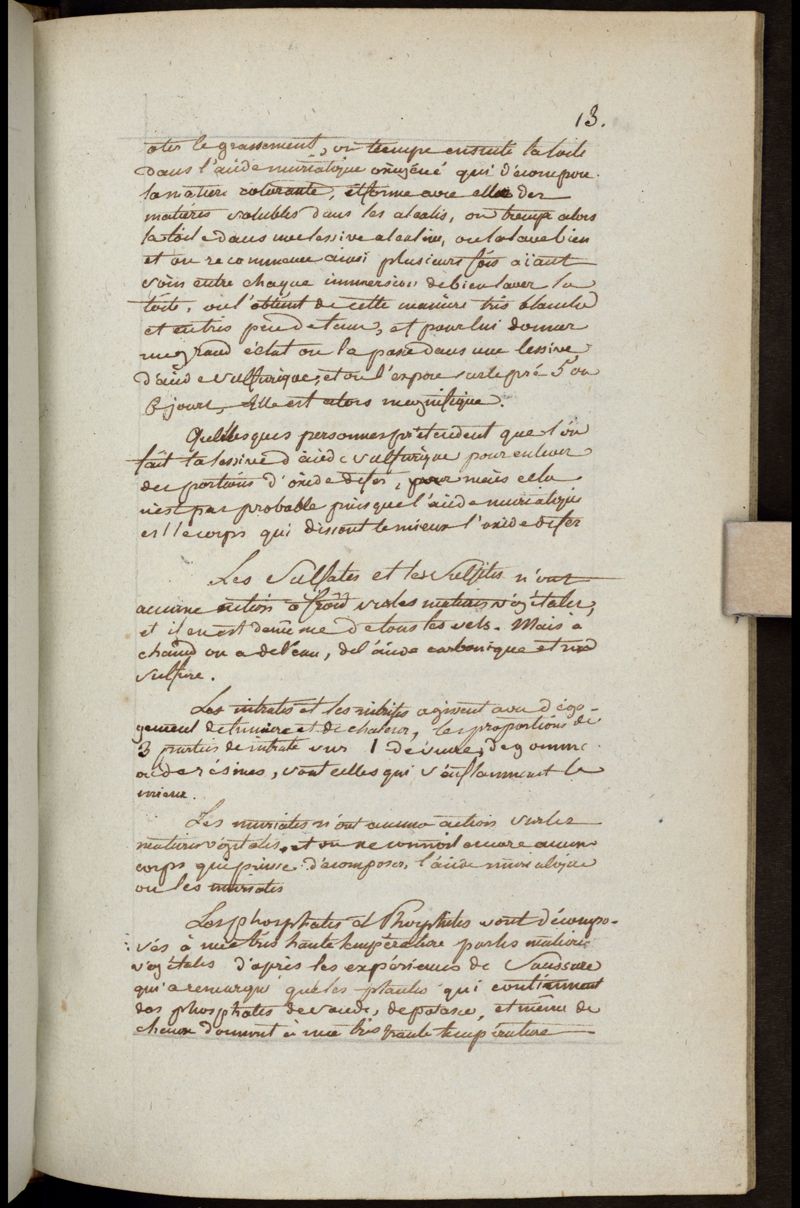 13.
oter le graissement, on trempe ensuite la toile
dans l'acide muriatique oxigéné qui décompose
la matiere colorante, et forme avec elle des
matières solubles dans les alcalis, on trempe alors
la toile dans une lessive alcaline, on la lave bien
et on recommence ainsi plusieurs fois aïant
soin entre chaque immersion de bien laver la
toile, on l'obtient de cette manière très blanche
et en très peu de tems, et pour lui donner
un grand éclat on la passe dans une lessive
d'acide sulfurique, et on l'expose sur le pré 5 ou
6 jours, Elle est alors magnifique.
Quelques personnes prétendent que l'on
fait la lessive d'acide sulfurique pour enlever
des portions d'oxide de fer, mais cela
n'est pas probable puisque l'acide muriatique
est le corps qui dissout le mieux l'oxide de fer
Les Sulfates et les Sulfites n'ont
aucune action à froid sur les matières végétales,
et il en est de même de tous les sels. Mais à
chaud on a de l'eau, de l'acide carbonique et un
sulfure.
Les nitrates et les nitrites agissent avec déga-
gement de lumière et de chaleur, les proportions de
3 parties de nitrate sur 1 de sucre, de gomme
ou de résines, sont celles qui s'enflamment le
mieux.
Les muriates n'ont aucune action sur les
matières végétales, et on ne connoit encore aucun
corps qui puisse décomposer l'acide muriatique
ou les muriates
Les phosphates et Phosphites sont décompo-
sés à une très haute température par les matières
végétales d'après les expériences de Saussure
qui a remarqué que les plantes qui contiennent
des phosphates de soude, de potasse, et même de
chaux donnent à une très haute température